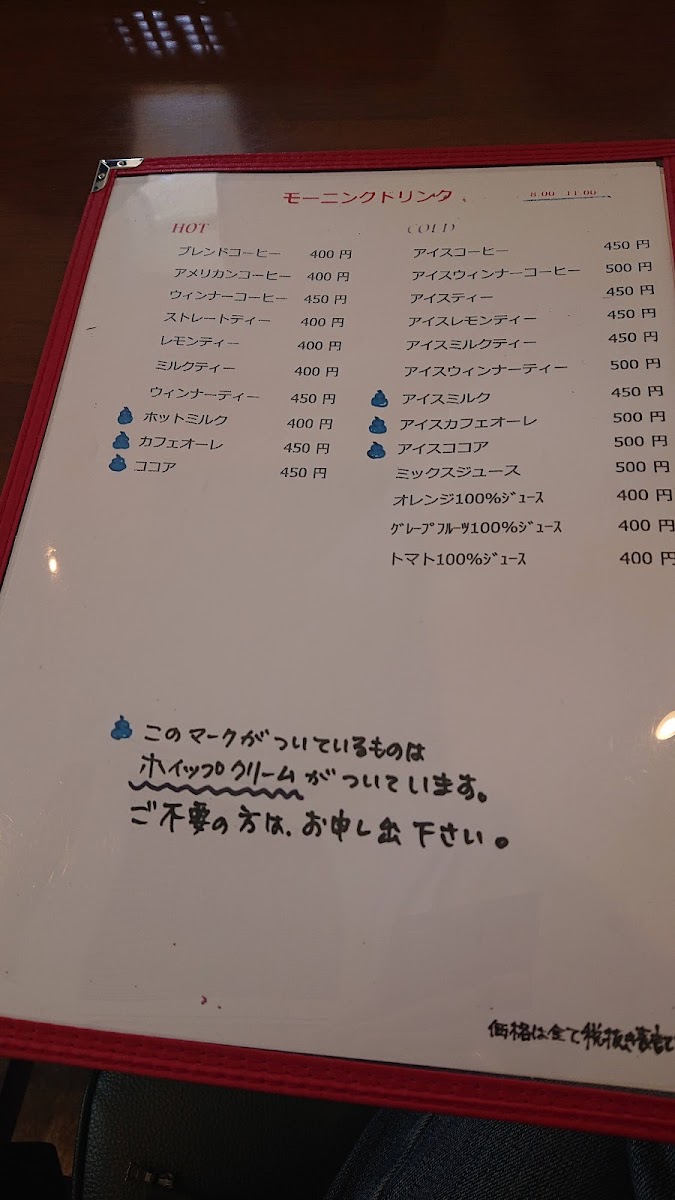 モーニングドリンク 8:00 11:00
HOT
ブレンドコーヒー 400 円
アメリカンコーヒー 400 円
ウィンナーコーヒー 450 円
ストレートティー 400 円
レモンティー 400 円
ミルクティー 400 円
ウィンナーティー 450 円
ホットミルク 400 円
カフェオーレ 450 円
ココア 450 円
COLD
アイスコーヒー 450 円
アイスウィンナーコーヒー 500 円
アイスティー 450 円
アイスレモンティー 450 円
アイスミルクティー 450 円
アイスウィンナーティー 500 円
アイスミルク 450 円
アイスカフェオーレ 500 円
アイスココア 500 円
ミックスジュース 500 円
オレンジ100%ｼﾞｭｰｽ 400 円
ｸﾞﾚｰﾌﾟﾌﾙｰﾂ100%ｼﾞｭｰｽ 400 円
トマト100%ｼﾞｭｰｽ 400 円
このマークがついているものは
ホイップクリームがついています。
ご不要の方は、お申し出下さい。
価格は全て税抜き